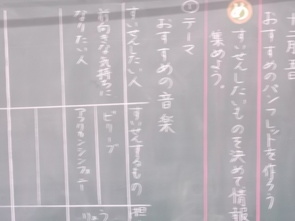 おすすめのパンフレットを作ろう
め
すいせんしたいものを決めて情報
集めよう。
①テーマ
おすすめの音楽
すいせんしたい人
前向きな気持ちに
なりたい人
すいせんするもの
ビリーブ